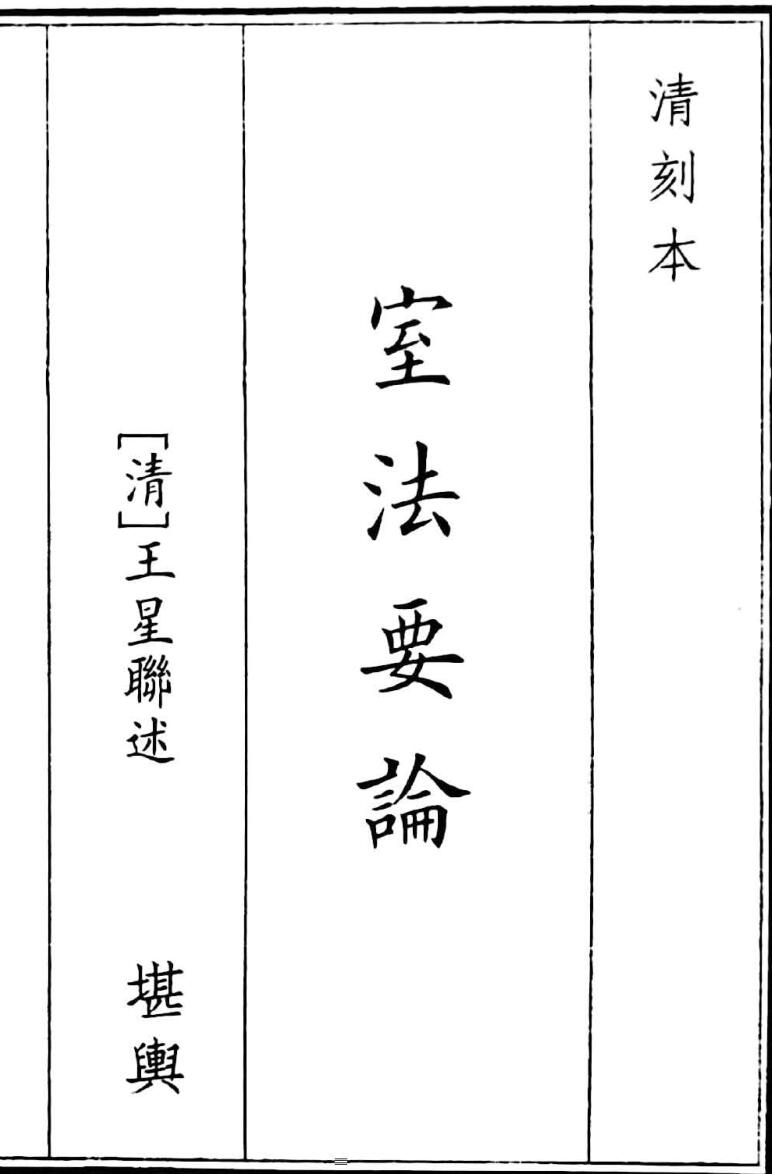 清刻本
室法要論
[清]王星聯述
堪輿